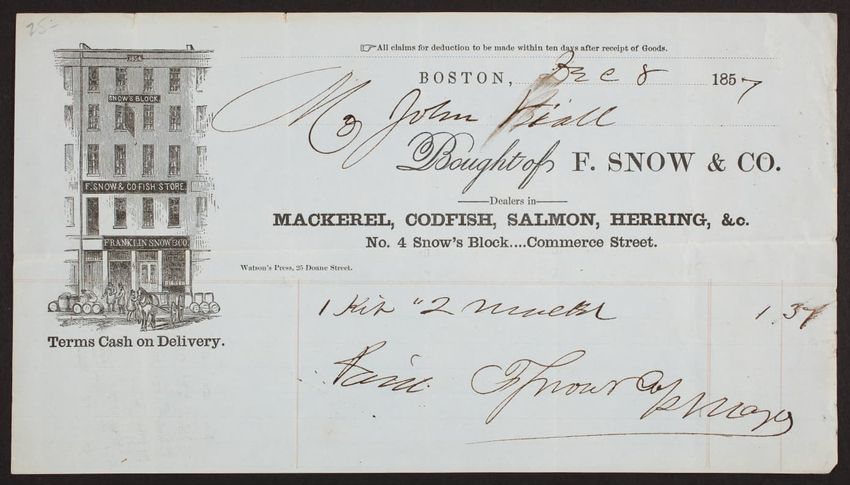 25-
☞All claims for deduction to be made within ten days after receipt of Goods.
BOSTON, Dec 8 1857
Mr John
Bought of F. SNOW & CO.
Dealers in
MACKEREL, CODFISH, SALMON, HERRING, &c.
No. 4 Snow's Block....Commerce Street.
Watson's Press, 25 Doane Street.
SNOW'S BLOCK
F. SNOW & CO FISH STORE.
FRANKLIN SNOW & CO.
Terms Cash on Delivery.
1 Kit "2 Mackl 1.37
Paid. F Snow & Co